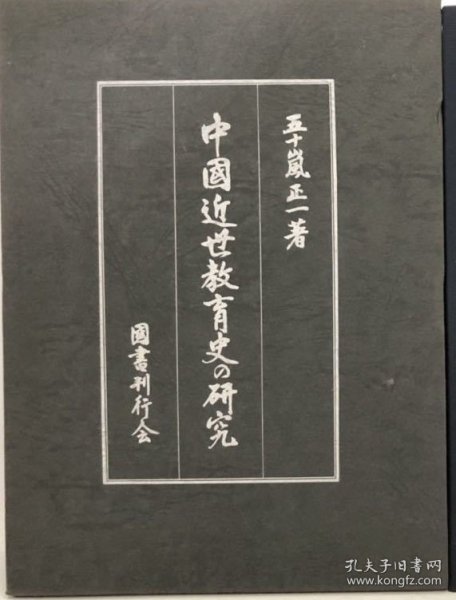 五十嵐正一著
中國近世教育史の研究
國書刊行会
孔夫子旧书网
www.kongfz.com